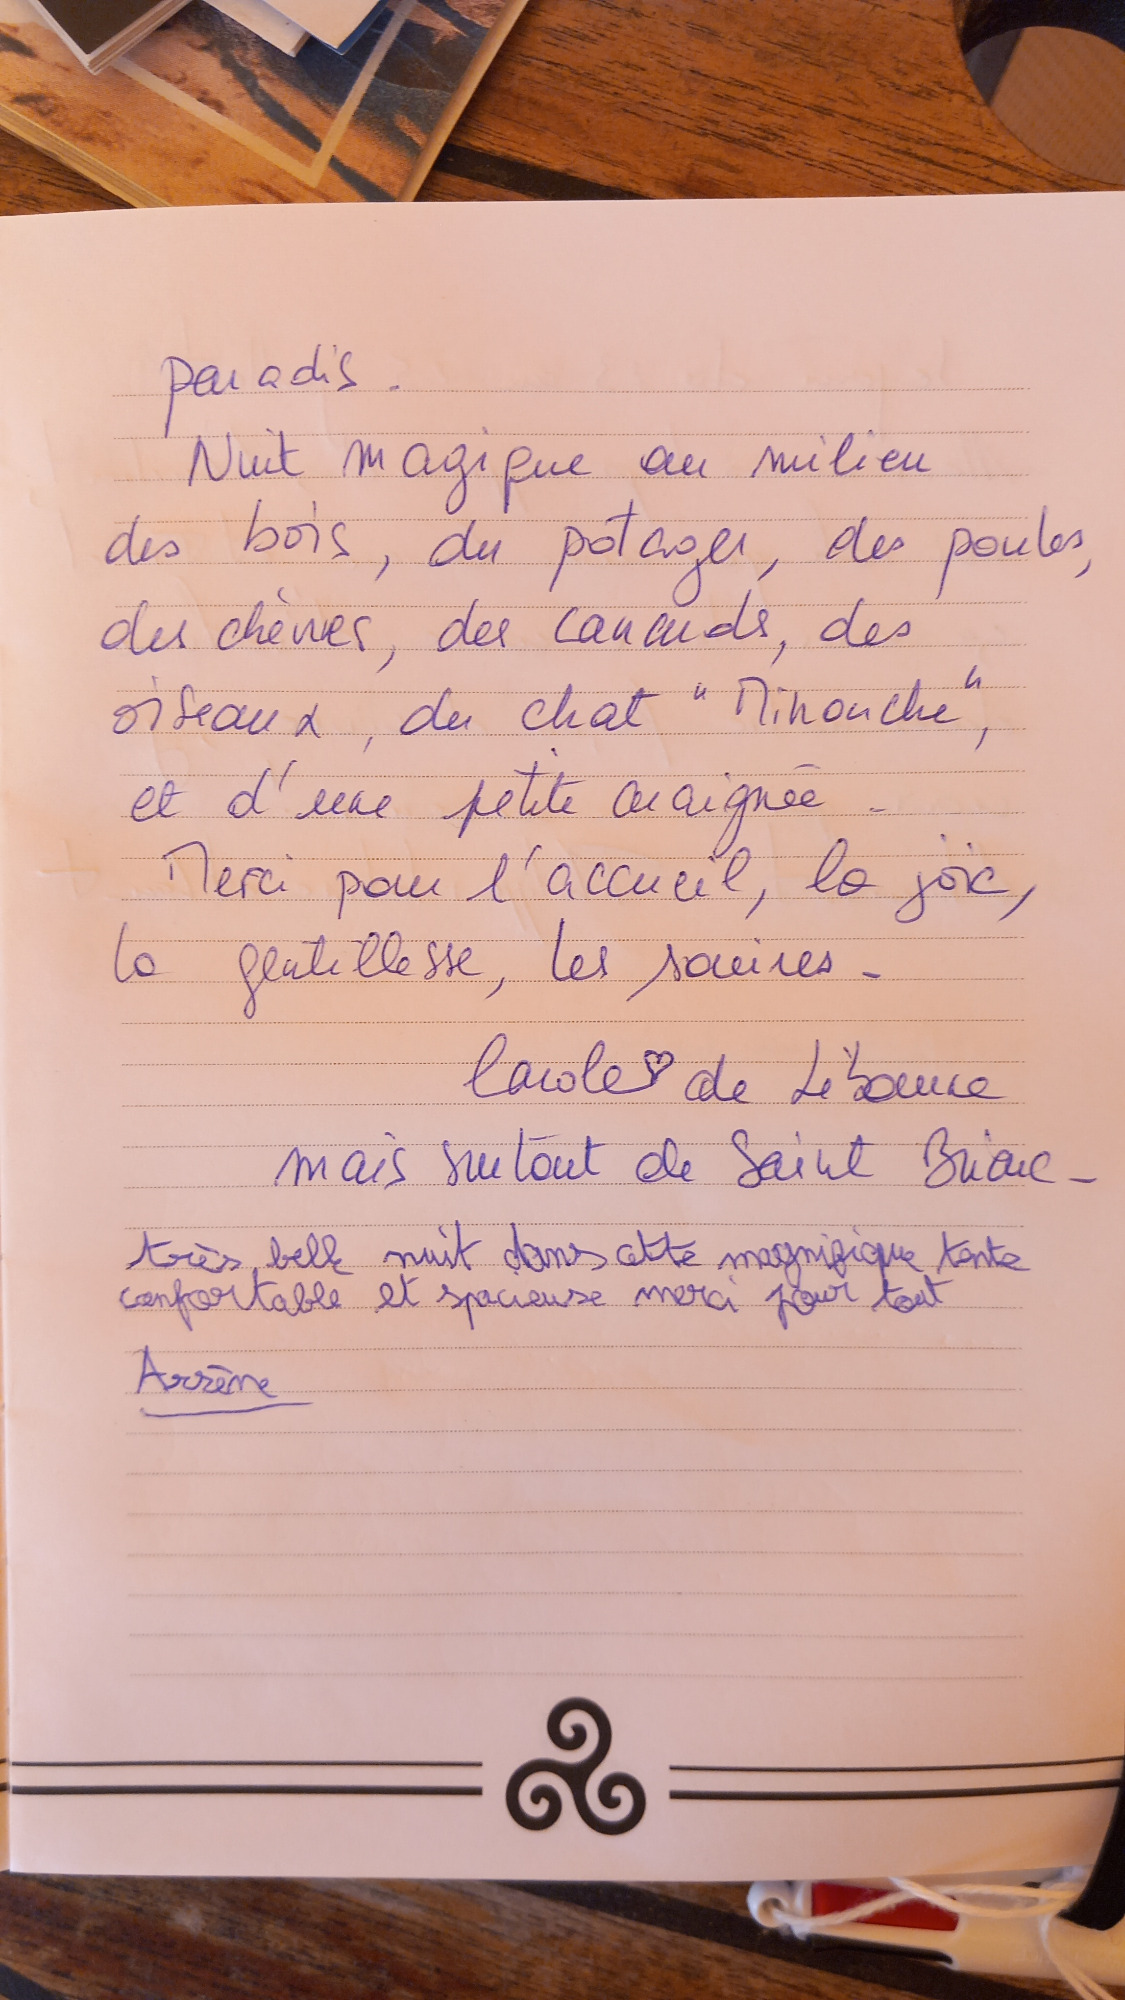 paradis.
Nuit magique au milieu
des bois, du potager, des poules,
des chèvres, des canards, des
oiseaux, du chat "Minouche",
et d'une petite araignée -
Merci pour l'accueil, la joie,
la gentillesse, les sourires -
Carole de
mais surtout de Saint Brieuc -
très belle nuit dans cette magnifique tente
confortable et spacieuse merci pour tout